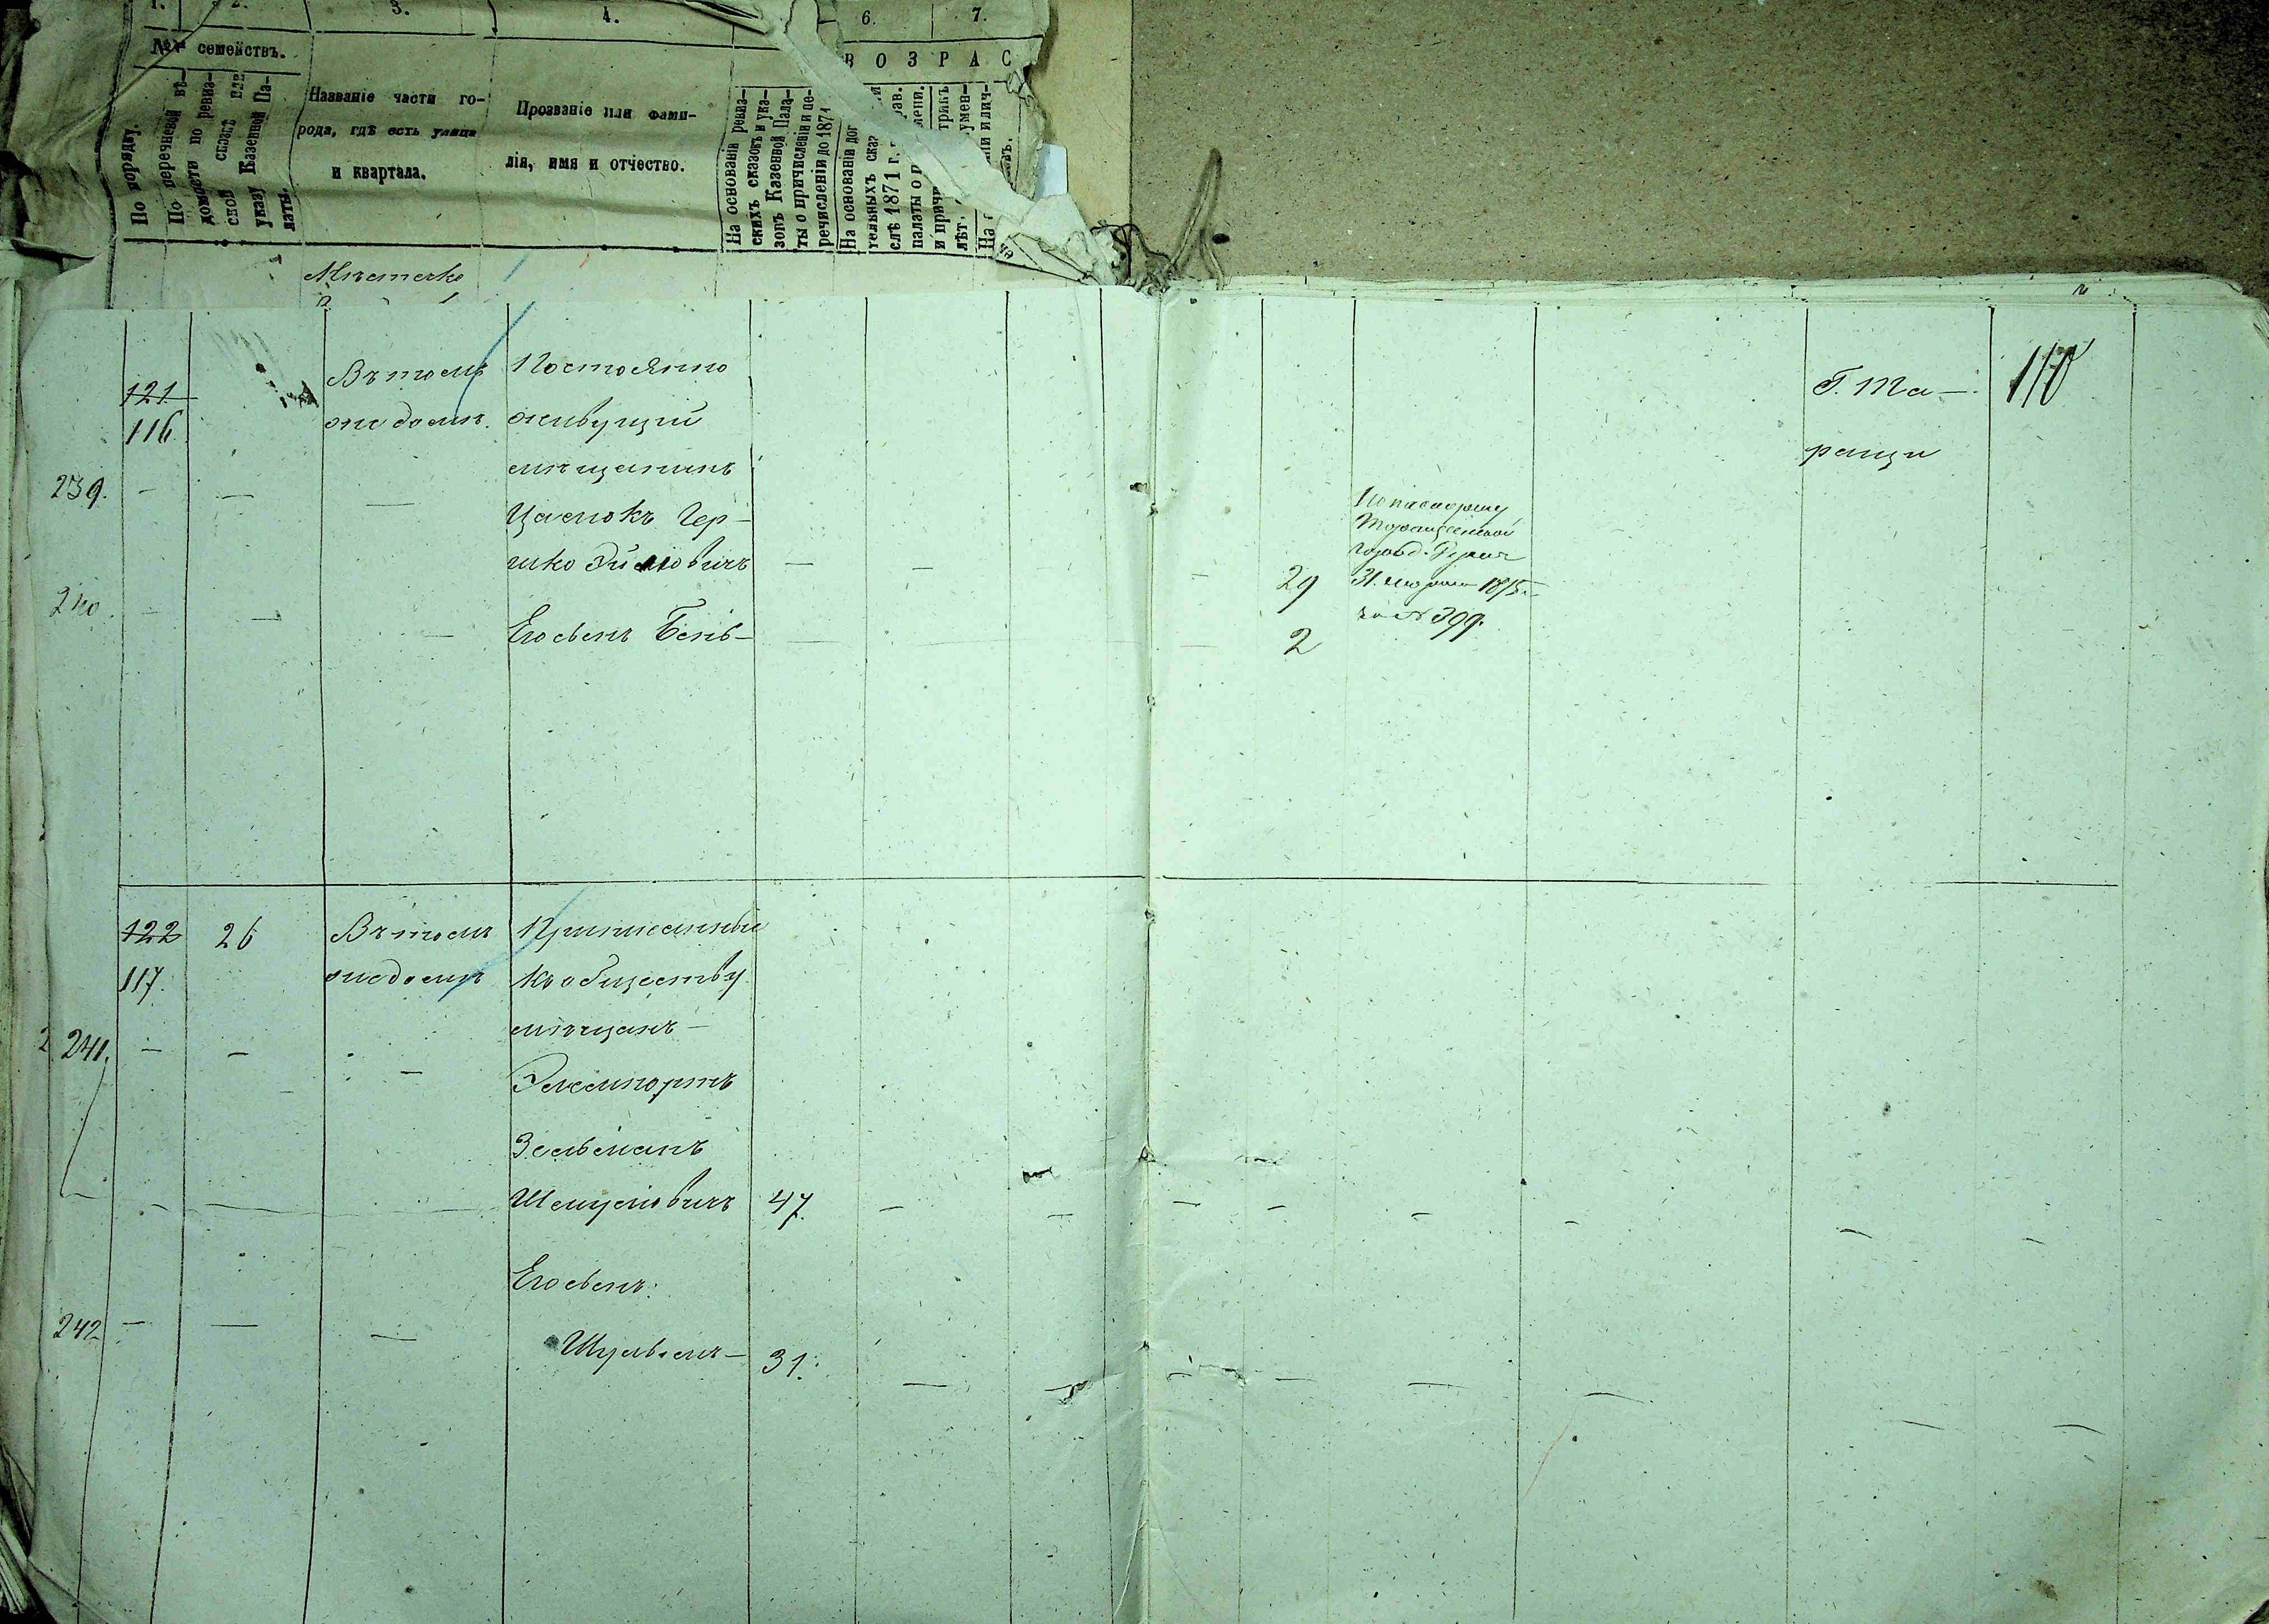 1. 2. 3. 4. 6. 7.
№№ семействъ.
По порядку.
По перечневой вѣ-
домости по ревиз-
ской сказкѣ или
указу Казенной Па-
латы.
Названіе части го-
рода, гдѣ есть улица
и квартала.
Прозваніе или фами-
лія, имя и отчество.
ВОЗРАС
На основаніи ревиз-
скихъ сказокъ и ука-
зовъ Казенной Пала-
ты о причисленіи и пе-
речисленіи до 1871
На основаніи
тельныхъ
слѣ 1871 г.
палаты о
и
лѣт
На
Мѣстечко
121
116
Въ томъ
же домѣ.
Постоянно
живущій
мѣщанинъ
239.
Цаліокъ Гер-
шко Эйліовичъ
29
По паспорту
Таращанской
31. марта 1875 г.
за № 399.
Г. Та-
ращи
110
240.
Его сынъ Бень-
2
122
117.
26
Въ томъ
же домѣ
Приписанный
къ обществу
мѣщанъ
2 241.
Зельманъ
Шмуліовичъ 47.
Его сынъ:
242
Шульимъ 31.